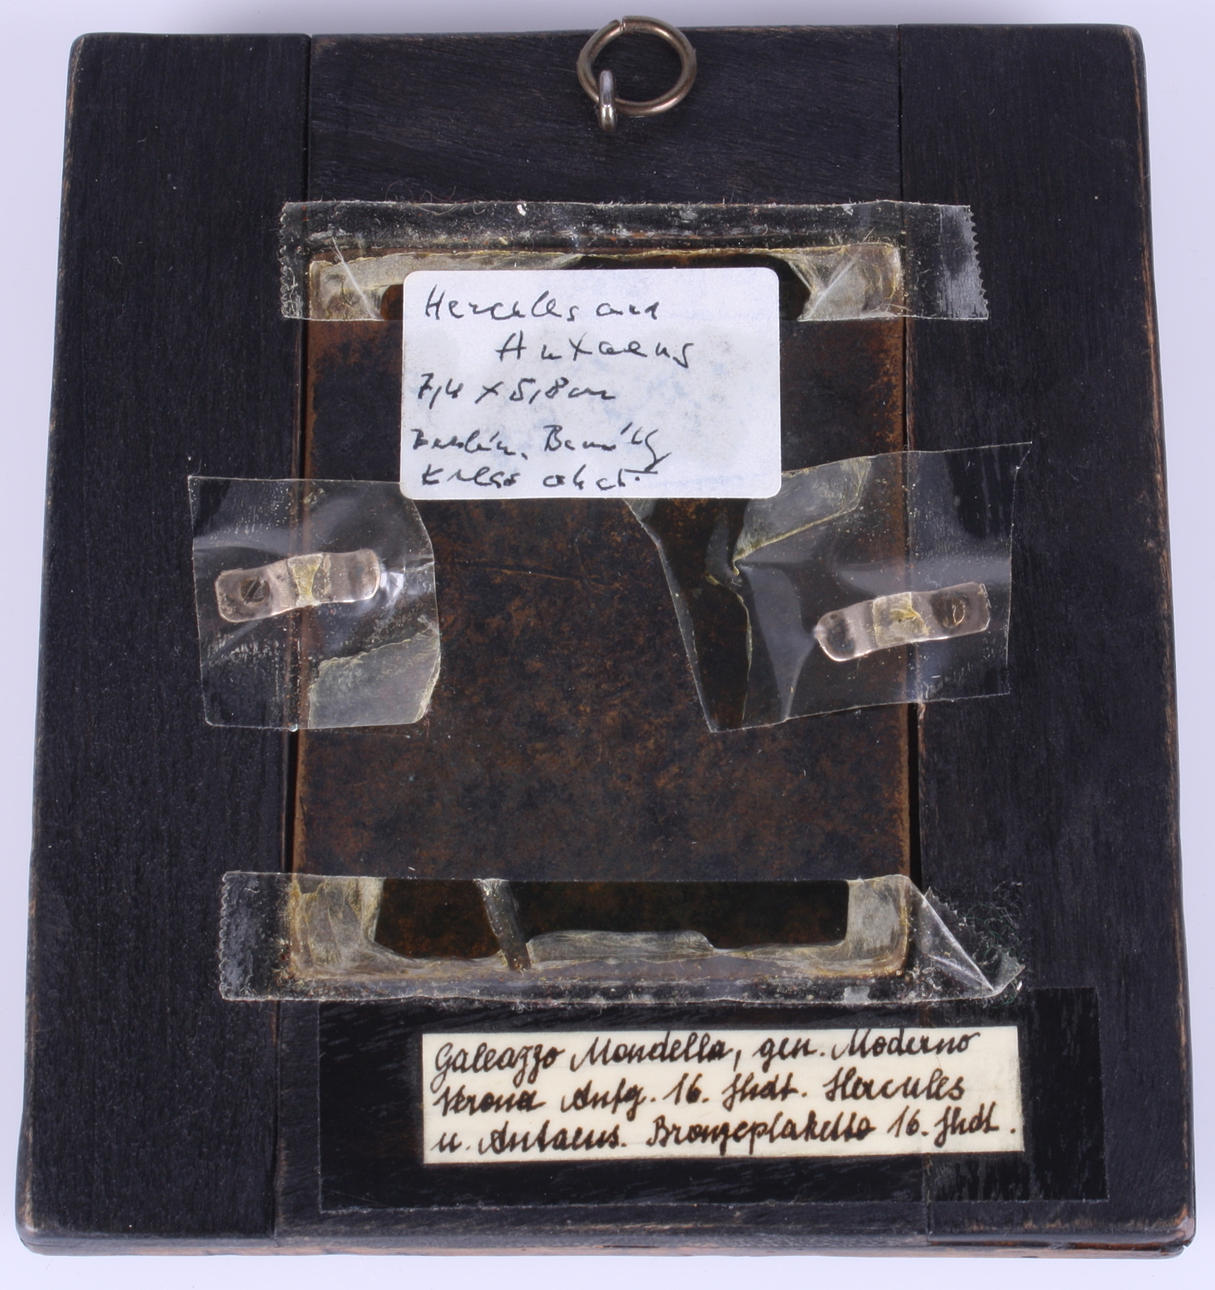 Hercules and
Antaeus
7,4 x 5,8 cm
Galeazzo Mondella, gen. Moderno
Verona Anfg. 16. Jhdt. Hercules
u. Antaeus. Bronzeplakette 16. Jhdt.